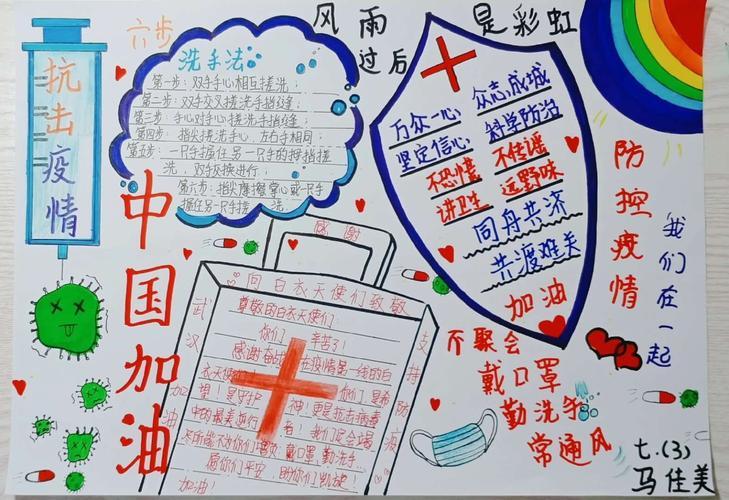 抗击疫情
六步
洗手法
第一步：双手手心相互搓洗；
第二步：双手交叉搓洗手指缝；
第三步：手心对手心搓洗手指缝；
第四步：指尖搓洗手心，左右手相同；
第五步：一只手握住另一只手的拇指搓
洗，双手交换进行；
第六步：指尖摩擦掌心或一只手
握住另一只手搓洗
风雨
过后
是彩虹
万众一心
坚定信心
不恐慌
讲卫生
众志成城
科学防治
不传谣
远野味
同舟共济
共渡难关
加油
防控疫情
我们在一起
中国加油
感谢
向白衣天使们致敬
武汉加油
尊敬的白衣天使们：
你们辛苦了！
感谢奋战在疫情第一线的白
衣天使
支持防疫
加油！
不聚会
戴口罩
勤洗手
常通风
七.(3)
马佳美